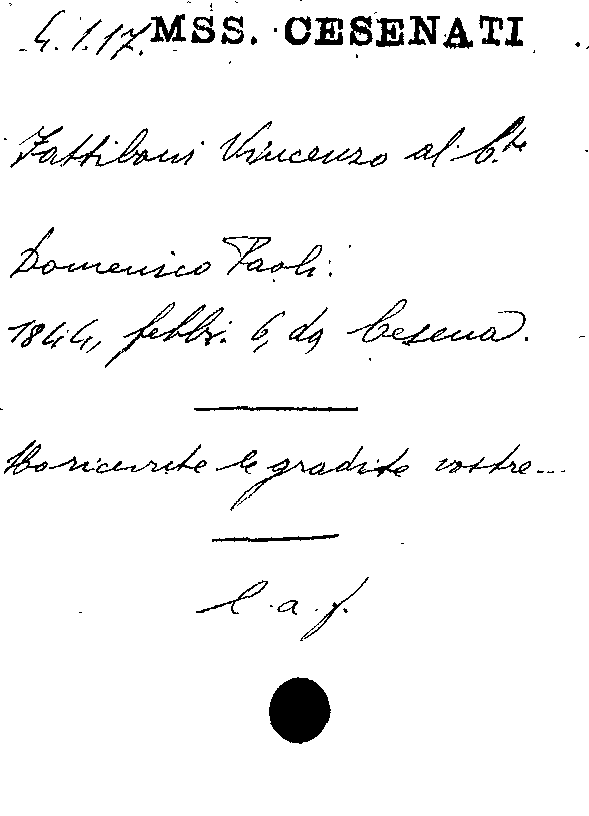 4.1.17. MSS. CESENATI
Fattiboni Vincenzo al C.te
Domenico Paoli.
1844, febbr. 6, da Cesena.
Ho ricevute le gradite vostre...
l. a. f.